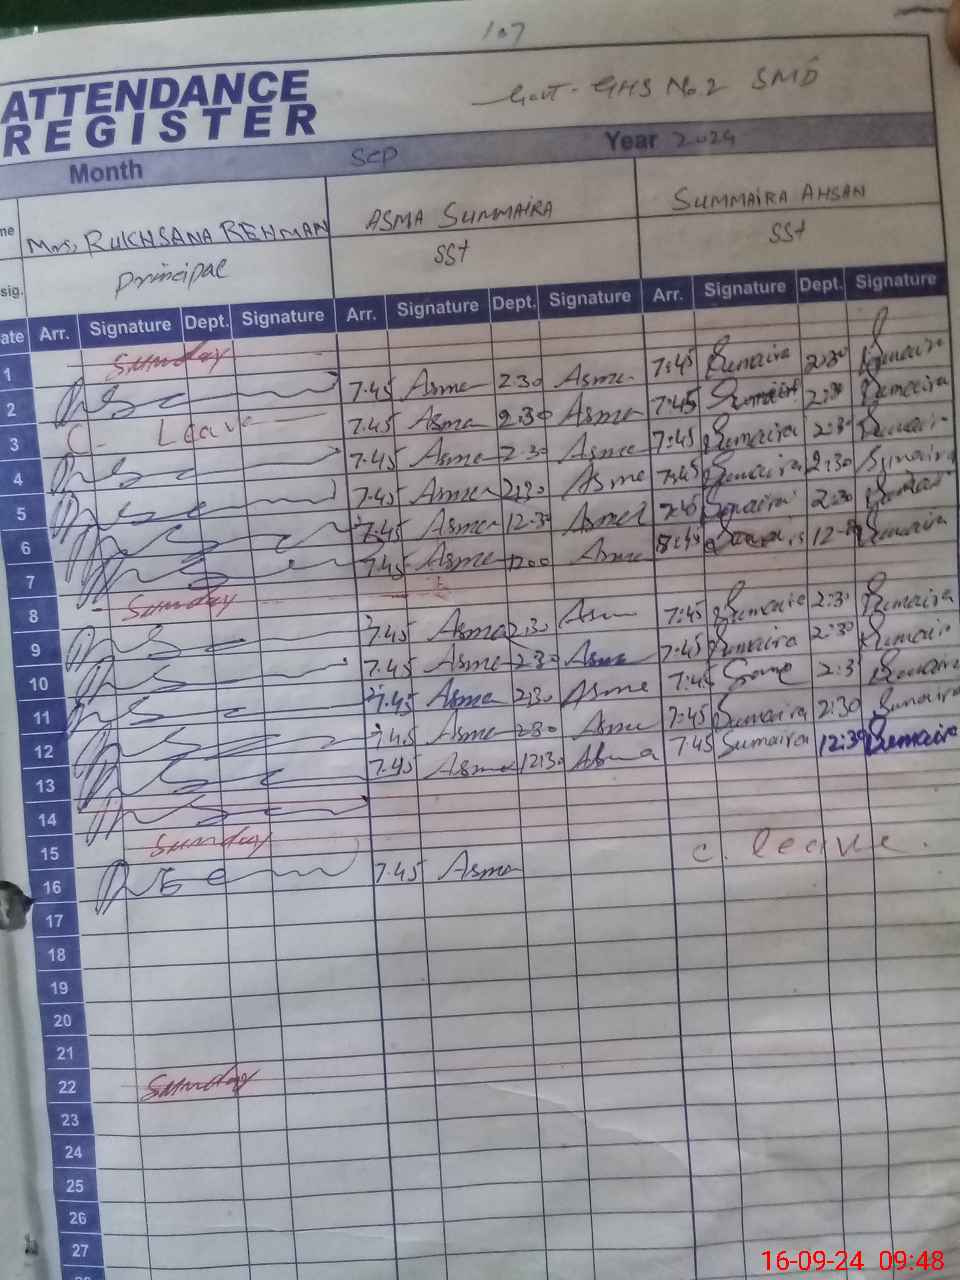 107
ATTENDANCE
REGISTER
Govt. GHS No.2 SMD
Month Sep Year 2024
me Mrs, RUKHSANA REHMAN ASMA SUMMAIRA SUMMAIRA AHSAN
sig. Principal SSt SSt
ate Arr. Signature Dept. Signature Arr. Signature Dept. Signature Arr. Signature Dept. Signature
1 Sunday
2 7.45 Asma 2.30 Asma 7:45 Sumaira 2:30 Sumaira
3 C- Leave 7.45 Asma 2:30 Asma 7:45 Sumaira 2:30 Sumaira
4 7.45 Asma 2.30 Asma 7:45 Sumaira 2:30 Sumaira
5 7.45 Asma 2:30 Asma 7:45 Sumaira 2:30 Sumaira
6 7.45 Asma 12:30 Asma 7:45 Sumaira 2:30 Sumaira
7 7.45 Asma 1200 Asma 8:45 12- Sumaira
8 Sunday
9 7.45 Asma 2:30 Asma 7:45 Sumaira 2:30 Sumaira
10 7.45 Asma 2:30 Asma 7:45 Sumaira 2:30 Sumaira
11 7.45 Asma 2:30 Asma 7:45 2:3 Sumaira
12 7.45 Asma 2:30 Asma 7:45 Sumaira 2:30 Sumaira
13 7.45 Asma 12:30 Asma 7:45 Sumaira 12:30 Sumaira
14
15 Sunday
16 7.45 Asma c. leave.
17
18
19
20
21
22 Sunday
23
24
25
26
27
16-09-24 09:48